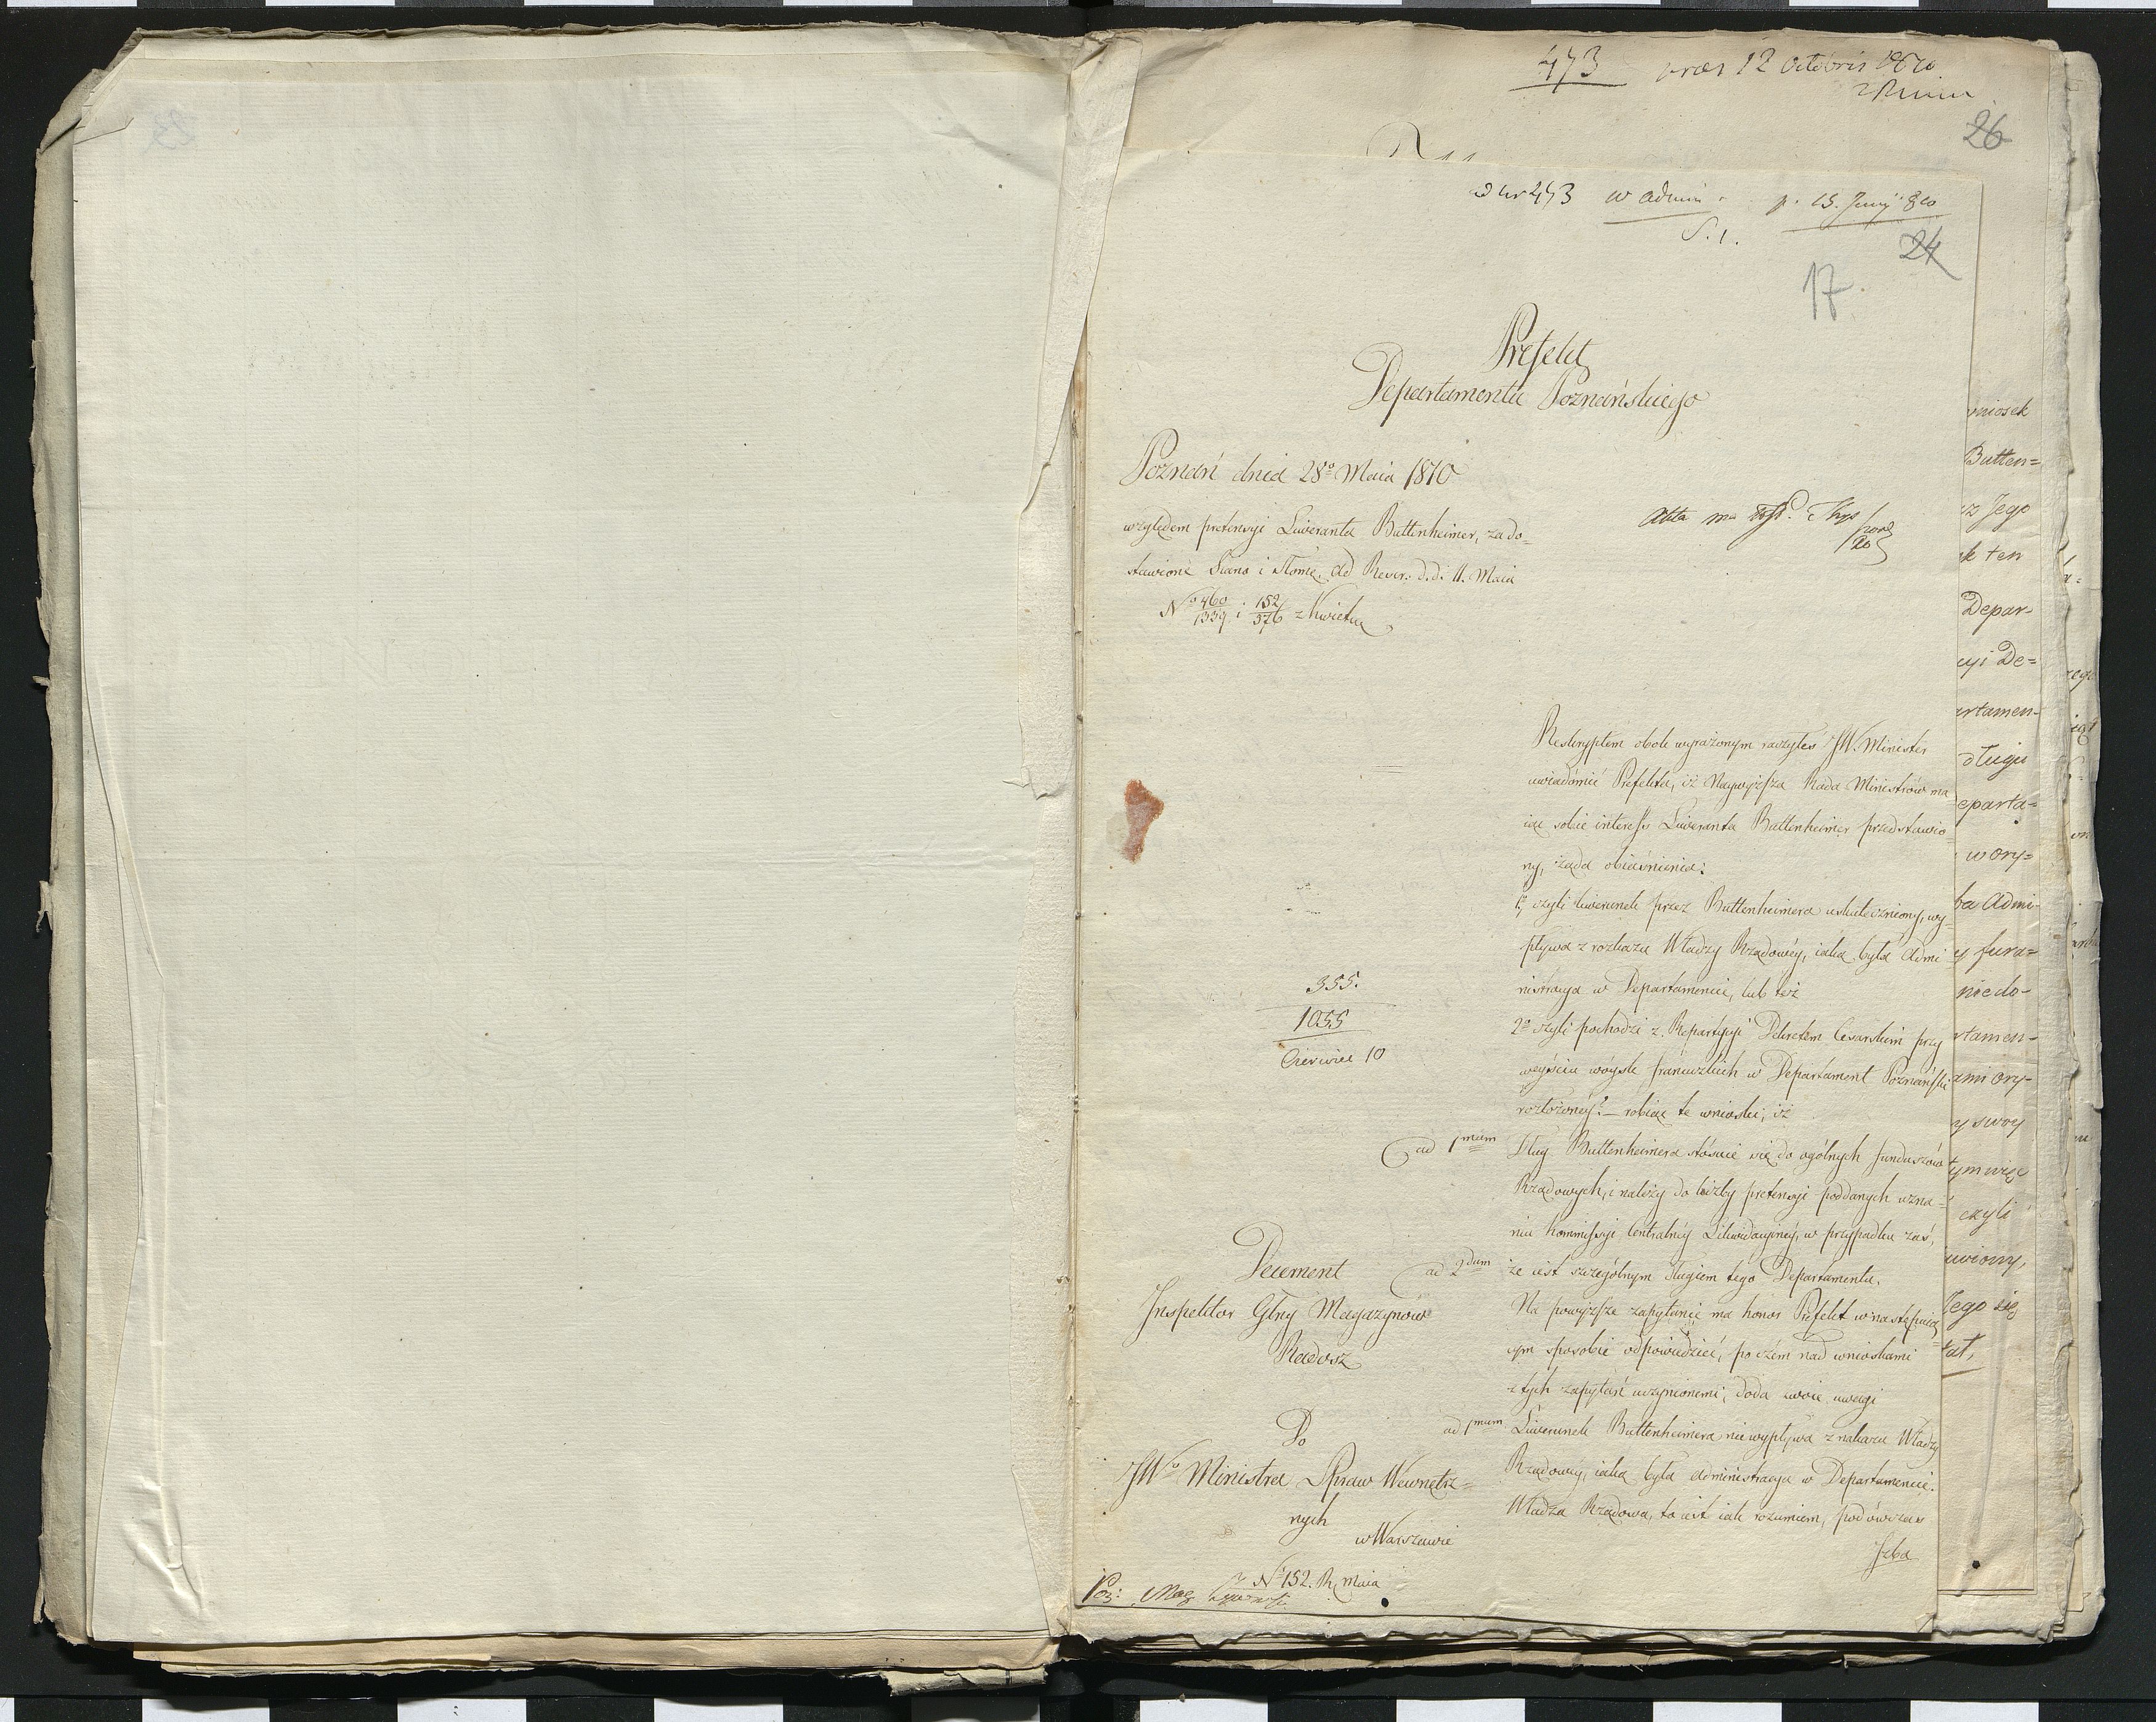 473 praes 12 Octobris 1810
26
ad nr 473 w admin. p. 15. Junij 810
S. 1.
24
17.
Prefekt
Departamentu Poznańskiego
Poznań dnia 28º Maia 1810
względem pretensyi Liweranta Buttenheimer, za do=
stawione Siano i Słomę, ad Rescr: d.d: 11. Maia
Nº 460/1339 i 152/576 z Kwietnia
Akta ma
Reskryptem obok wyrażonym raczyłeś JW. Minister
uwiadomić Prefekta, iż Naywyższa Rada Ministrów ma
iąc sobie interess Liweranta Buttenheimer przedstawio
ny, żąda obiaśnienia:
1º, czyli liwerunek przez Buttenheimera uskuteczniony, wy
pływa z rozkazu Władzy Rządowéy, iaką była Admi
nistracya w Departamencie, lub też
2º czyli pochodzi z Repartycyi Dekretem Cesarskim przy
weyściu woysk francuzkich w Departament Poznański
rozłożonéy? – robiąc te wnioski, iż
ad 1mum Dług Buttenheimera stósuie się do ogólnych funduszów
Rządowych, i należy do liczby pretensyi poddanych uzna=
niu Kommissyi Centralnéy Likwidacyinéy, w przypadku zaś,
ad 2dum że iest szczególnym długiem tego Departamentu.
Na powyższe zapytanie ma honor Prefekt w następuią
cym sposobie odpowiedzieć, poczém nad wnioskami
z tych zapytań uczynionemi, doda swoie uwagi
ad 1mum Liwerunek Buttenheimera nie wypływa z nakazu Władzy
Rządowéy, iaką była Administracya w Departamencie.
Władza Rządowa, to iest iak rozumiem, podówczas
Izba
355.
1055
Czerwiec 10
Decernent
Inspektor Glny Magazynów
Radosz
Do
JWº Ministra Spraw Wewnętrz=
nych
w Warszawie
Nº 152. R. Maia
Poz: Mag
wniosek
Butten=
z Jego
k ten
Depar-
cyi De=
artamen-
długu
eparta=
w ory=
ba Admi-
y fura=
nie do-
rtamen-
ami ory-
y swoy
tym więc
czyli
uwiony,
Tego się
tat,